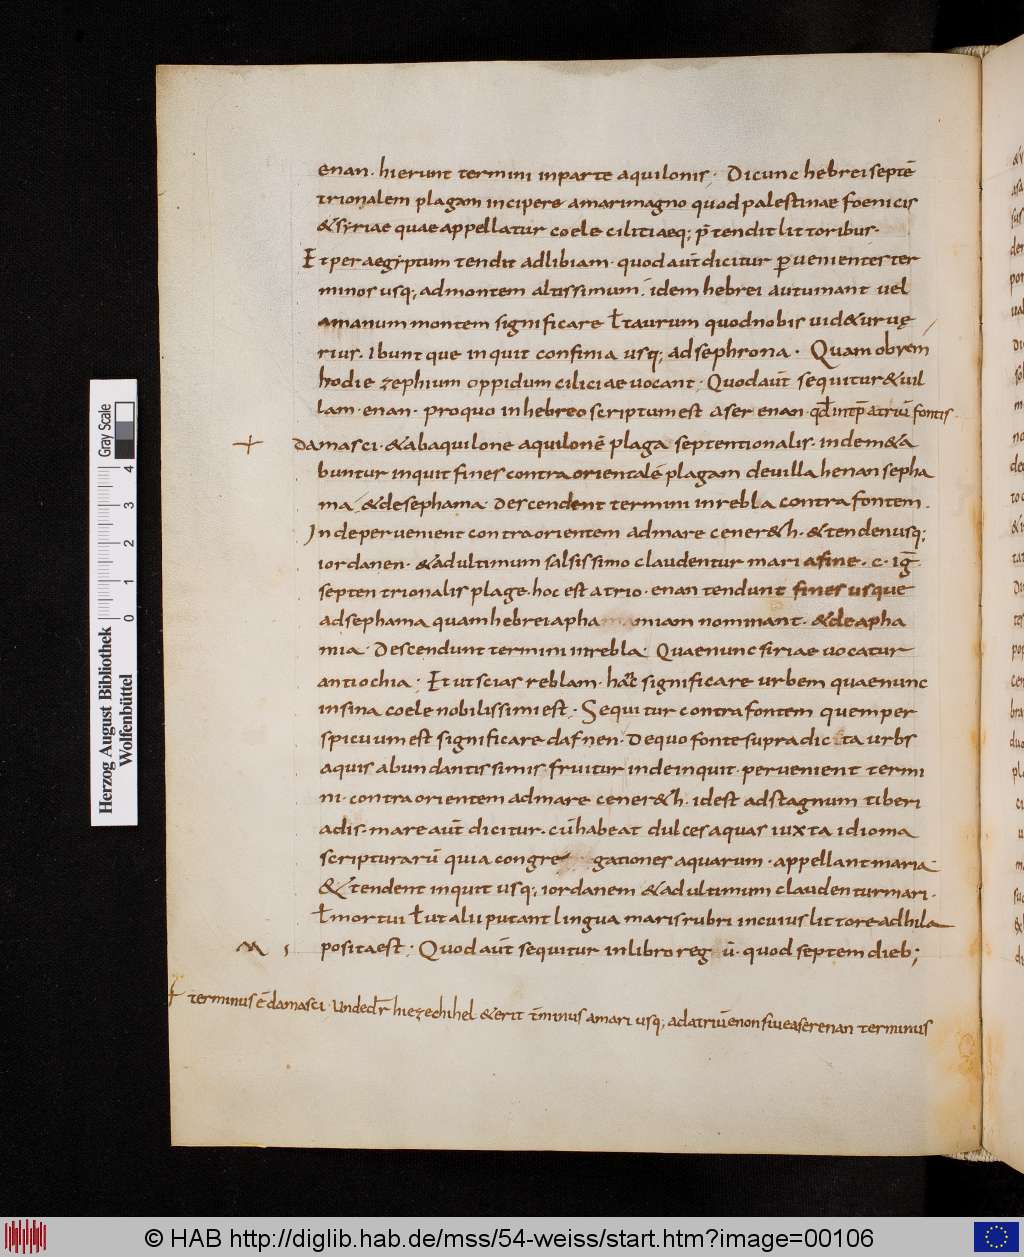 enan · hierunt termini inparte aquilonis · Dicunc hebrei septē
trionalem plagam incipere amarimagno quod palestinae foenicis
&syriae quae appellatur coele cilitiaeq; p̄tendit littoribus ·
Et per aegyptum tendit adlibiam · quod aūt dicitur peruenientes ter
minos usq; ad montem altissimum · idem hebrei autumant uel
amanum montem significare ł taurum quod nobis uid&ur uę
rius · Ibunt que inquit confinia usq; ad sephrona · Quam obrem
hodie zephium oppidum ciliciae uocant ; Quod aūt sequitur &uil
lam · enan · proquo in hebreo scriptum est aser enan · qd̄ intp̄ atriū fontis ·
Damasci · &abaquilone aquilonē plaga septentionalis · indem&a
buntur inquit fines contra orientalē plagam deuilla henan sepha
ma · &desephama · Descendent termini inrebla contra fontem ·
Inde peruenient contra orientem admare cener&h · &tendenusq;
iordanen · &adultimum salsissimo claudentur mari afine · c · ig̅
septen trionalis plage · hoc est atrio · enan tendunt fines usque
adsephama quam hebrei apha amiam nominant · &deapha
mia · Descendunt termini inrebla · Quae nunc siriae uocatur
antiochia ; Et ut scias reblam · hāc significare urbem quae nunc
insiria coele nobilissimi est ; Sequitur contra fontem quem per
spicuum est significare dafnen · Dequo fonte supradicta urbs
aquis abundantissimis fruitur inde inquit · peruenient termi
ni · contra orientem admare cener&h · idest adstagnum tiberi
adis · mare aūt dicitur · cū habeat dulces aquas iuxta idioma
scripturarū quia congre gationes aquarum · appellant maria ·
&tendent inquit usq; iordanem &adultimum claudentur mari ·
ł mortui ł ut alii putant lingua maris rubri incuius littore adhila
posita est ; Quod aūt sequitur inlibro reg ū · quod septem dieb;
terminus ē damasci · Unde dr̄ hiezechihel &erit t̄minus amari usq; adatriū enon siue aserenan terminus
Herzog August Bibliothek
Wolfenbüttel
0 1 2 3 4
Gray Scale
© HAB http://diglib.hab.de/mss/54-weiss/start.htm?image=00106